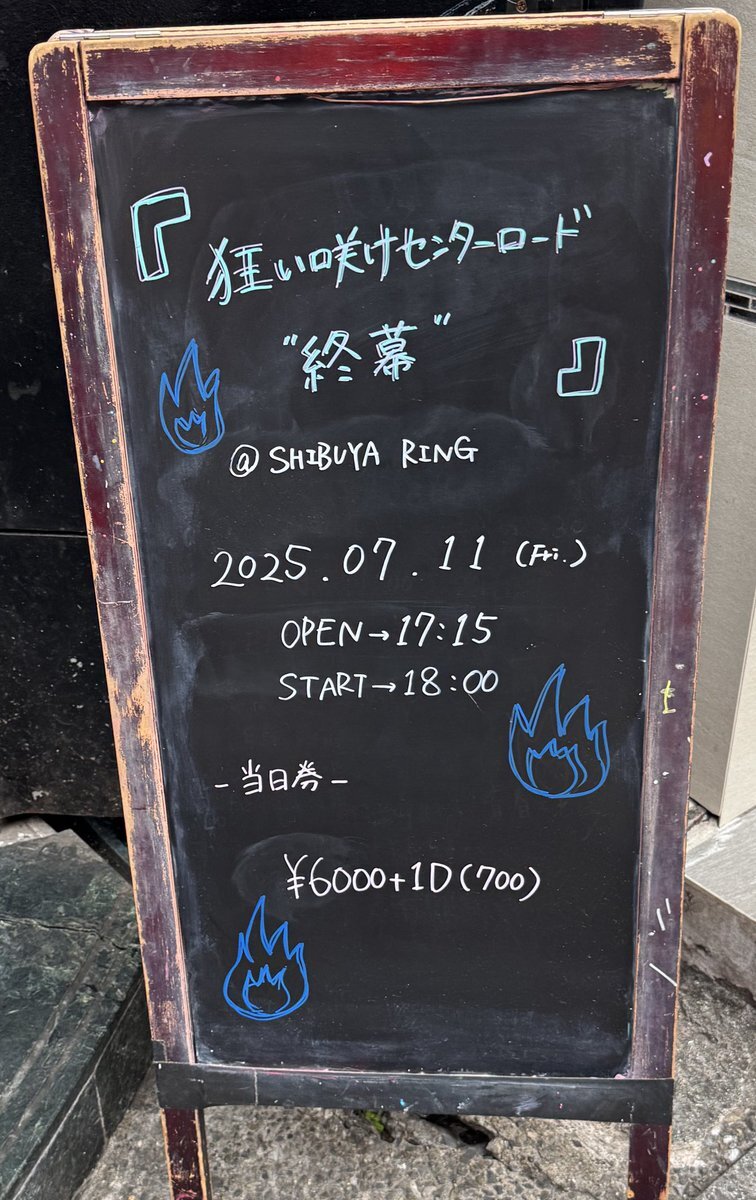 『狂い咲けセンターロード
"終幕"』
@ SHIBUYA RING
2025.07.11 (Fri.)
OPEN→17:15
START→18:00
-当日券-
¥6000+1D(700)